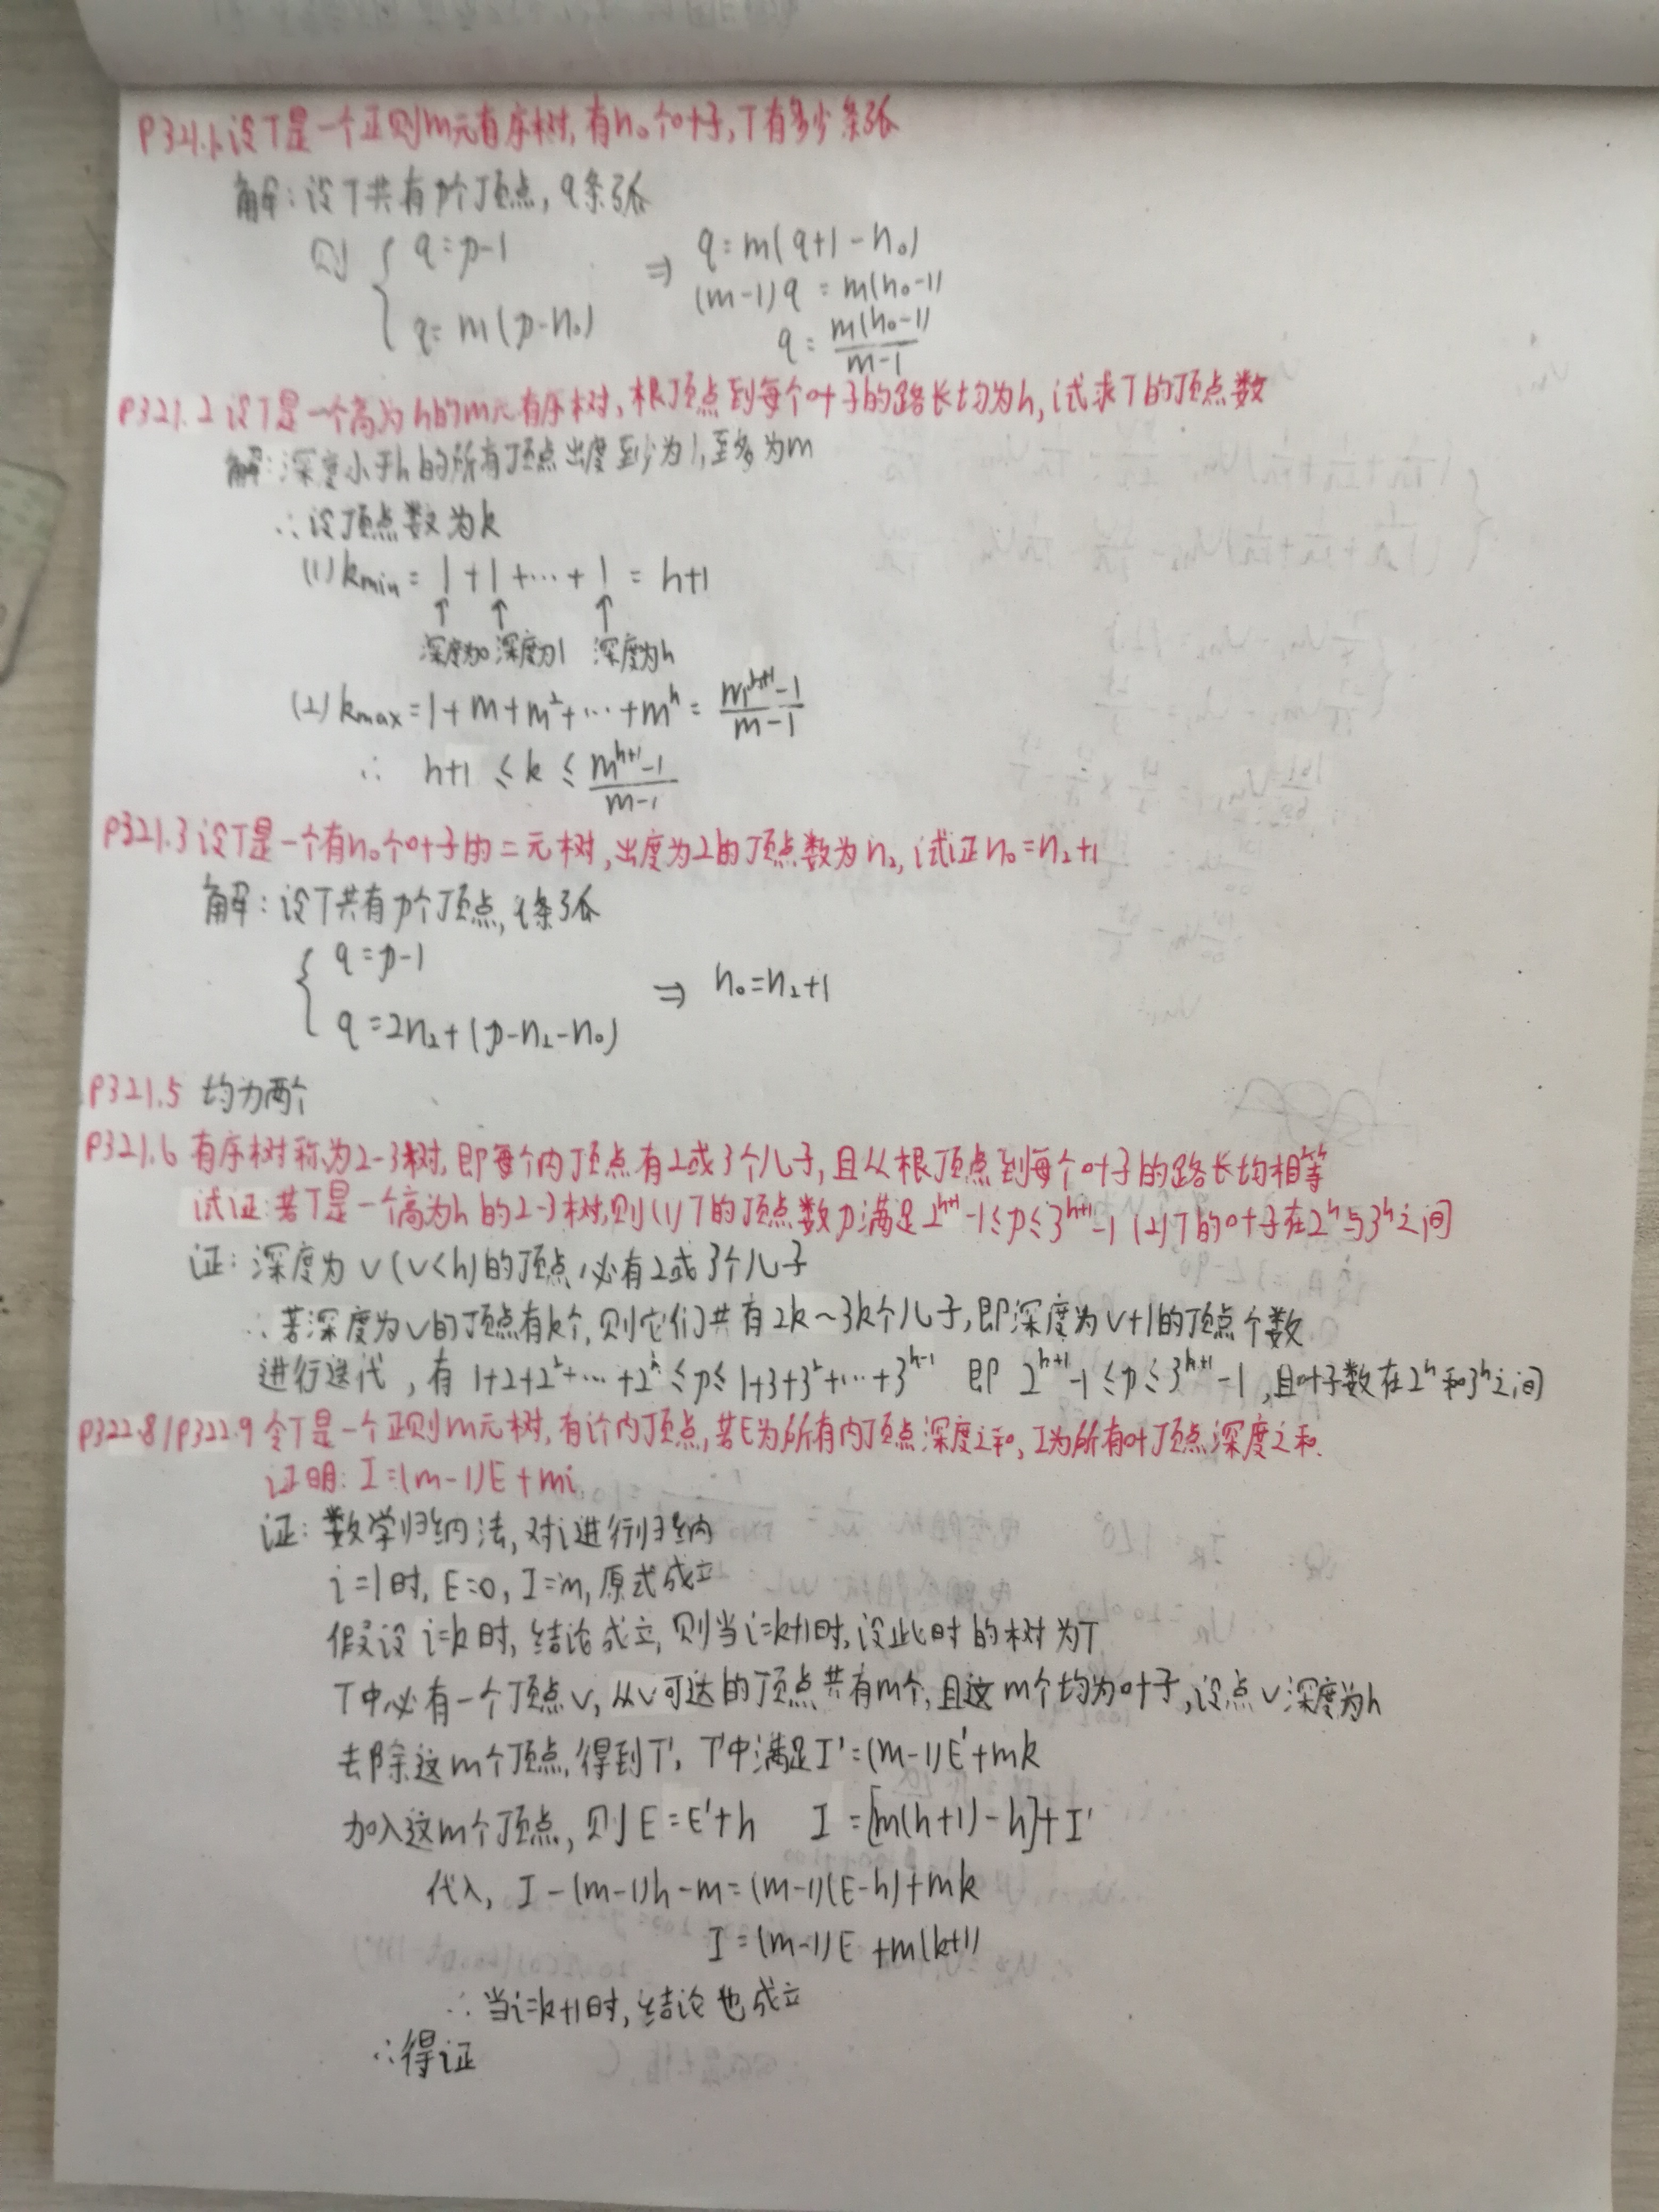 P321.1 设T是一个正则m元有序树,有n₀个叶子,T有多少条弧
解:设T共有p个顶点,q条弧
则 { q=p-1 ⇒ q=m(q+1-n₀)
(m-1)q = m(n₀-1)
q=m(p-n₀) q = m(n₀-1)/(m-1)
P321.2 设T是一个高为h的m元有序树,根顶点到每个叶子的路长均为h,试求T的顶点数
解:深度小于h的所有顶点出度至少为1,至多为m
∴设顶点数为k
(1) kmin = 1+1+···+1 = h+1
↑ ↑ ↑
深度为0 深度为1 深度为h
(2) kmax = 1+m+m²+···+m^h = (m^(h+1)-1)/(m-1)
∴ h+1 ≤ k ≤ (m^(h+1)-1)/(m-1)
P321.3 设T是一个有n₀个叶子的二元树,出度为2的顶点数为n₂,试证n₀=n₂+1
解:设T共有p个顶点,q条弧
{ q=p-1
q=2n₂+(p-n₂-n₀) ⇒ n₀=n₂+1
P321.5 均为两个
P321.6 有序树称为2-3树,即每个内顶点有2或3个儿子,且从根顶点到每个叶子的路长均相等
试证:若T是一个高为h的2-3树,则(1)T的顶点数p满足2^(h+1)-1≤p≤3^(h+1)-1 (2)T的叶子在2^h与3^h之间
证:深度为v(v<h)的顶点,必有2或3个儿子
∴若深度为v的顶点有k个,则它们共有2k~3k个儿子,即深度为v+1的顶点个数
进行迭代,有 1+2+2²+···+2^h≤p≤1+3+3²+···+3^(h-1) 即 2^(h+1)-1≤p≤3^(h+1)-1,且叶子数在2^h和3^h之间
P322.8/P322.9 令T是一个正则m元树,有i个内顶点,若E为所有内顶点深度之和,I为所有叶顶点深度之和.
证明:I=(m-1)E+mi
证:数学归纳法,对i进行归纳
i=1时,E=0,I=m,原式成立
假设i=k时,结论成立,则当i=k+1时,设此时的树为T
T中必有一个顶点v,从v可达的顶点共有m个,且这m个均为叶子,设点v深度为h
去除这m个顶点,得到T',T'中满足I'=(m-1)E'+mk
加入这m个顶点,则E=E'+h I=[m(h+1)-h]+I'
代入,I-(m-1)h-m=(m-1)(E-h)+mk
I=(m-1)E+m(k+1)
∴当i=k+1时,结论也成立
∴得证